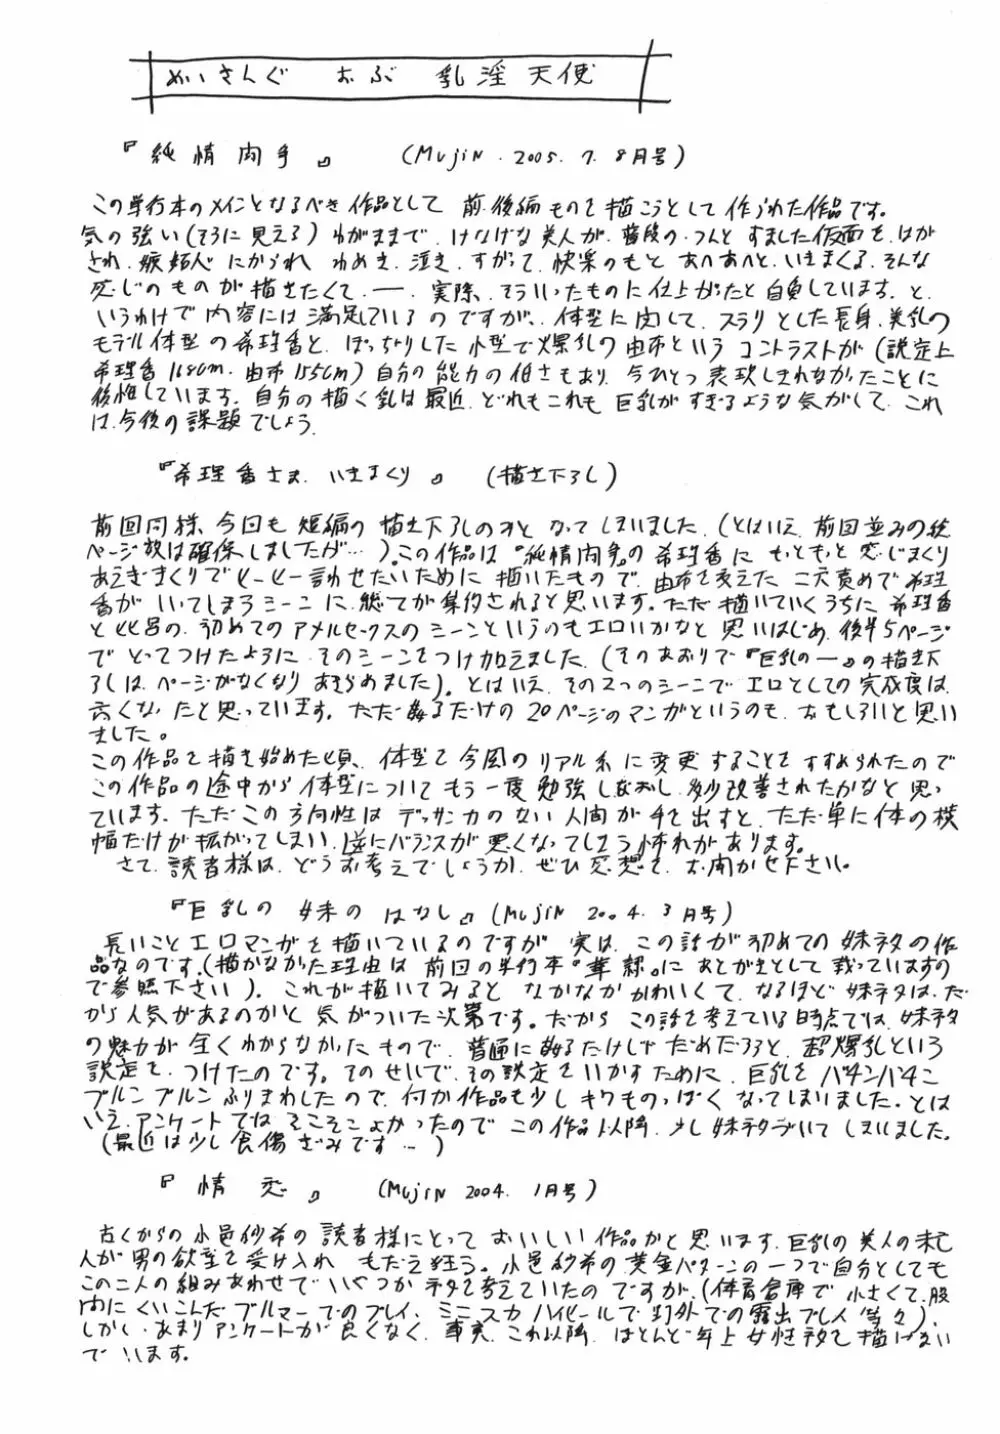 めいきんぐ おぶ 乳淫天使
『純情肉手』 (MujiN. 2005. 7. 8月号)
この単行本のメインとなるべき作品として 前.後編ものを描こうとして作られた作品です。
気の強い(そうに見える)わがままで、けなげな美人が、普段の、つんとすました仮面を、はが
され、嫉妬心にかられ わめき、泣き、すがって、快楽のもと あへあへと、いきまくる、そんな
感じのものが描きたくて、ー、実際、そういったものに仕上がったと自負しています。と、
いうわけで内容には満足しているのですが、体型に関して、スラリとした長身、美乳の
モデル体型の希理香と、ぽっちゃりした小型で爆乳の由布というコントラストが(設定上
希理香168cm、由布155cm)自分の能力の低さもあり、今ひとつ表現しきれなかったことに
後悔しています。自分の描く乳は最近、どれもこれも 巨乳がすぎるような気がして、これ
は、今後の課題でしょう。
『希理香さま、いきまくり』 (描き下ろし)
前回同様、今回も短編の描き下ろしのみと なってしまいました。(とはいえ、前回並みの総
ページ数は確保しましたが…)。この作品は『純情肉手』の希理香に もっともっと 感じまくり
あえぎまくりでヒーヒー言わせたいために描いたもので、由布を交えた 二穴責めで希理
香がいってしまうシーンに、総てが集約されると思います。ただ 描いていくうちに 希理香
と の、初めてのアナルセックスのシーンというのもエロいかなと 思いはじめ、後半5ページ
で とってつけたように そのシーンをつけ加えました。(そのあおりで『巨乳のー』の描き下
ろしは、ページがなくなり あきらめました)。とはいえ、その2つのシーンで エロとしての完成度は、
高くなったと思っています。ただ するだけの20ページのマンガというのも、おもしろいと思い
ました。
この作品を描き始めた頃、体型を今風のリアル系に変更することをすすめられたので
この作品の途中から 体型について もう一度勉強しなおし、多少改善されたかなと思っ
ています。ただ この方向性は デッサン力のない人間が手を出すと、ただ単に体の横
幅だけが拡がってしまい、逆にバランスが悪くなってしまう怖れがあります。
さて、読者様は、どうお考えでしょうか、ぜひ感想を、お聞かせ下さい。
『巨乳の妹のはなし』(MujiN 2004. 3月号)
長いことエロマンガを描いているのですが、実は、この話が初めての妹ネタの作
品なのです。(描かなかった理由は 前回の単行本『 』に あとがきとして載っていますの
で参照下さい)。これが描いてみると なかなかかわいくて、なるほど妹ネタは、だ
から人気があるのかと 気がついた次第です。だから この話を考えている時点では、妹ネタ
の魅力が 全くわからなかったもので、普通に するだけじゃだめだろうと、超爆乳という
設定を、つけたのです。そのせいで、その設定をいかすために、巨乳をバチンバチン
ブルンブルンふりまわしたので、何か作品も少しキワものっぽくなってしまいました。とは
いえ、アンケートでは そこそこよかったので この作品以降、少し妹ネタづいてしまいました。
(最近は少し食傷ぎみです…)
『情恋』 (MujiN 2004. 1月号)
古くからの小邑紗希の読者様にとって おいしい作品かと思います、巨乳の美人の未亡
人が男の欲望を受け入れ もだえ狂う。小邑紗希の黄金パターンの一つで自分としても
この二人の組みあわせで いくつかネタを考えていたのですが、(体育倉庫で 小さくて、股
間にくいこんだブルマーでのプレイ、ミニスカハイヒールで野外での露出プレイ等々)、
しかし、あまりアンケートが良くなく、事実、これ以降、ほとんど年上女性ネタを描けない
でいます。